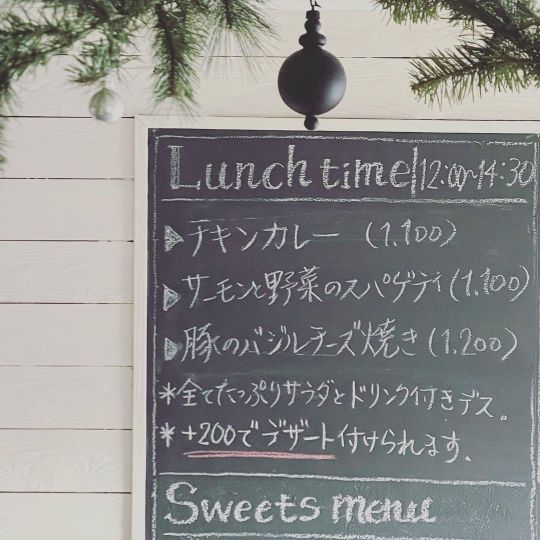 Lunch time 12:00~14:30
▶チキンカレー (1.100)
▶サーモンと野菜のスパゲティ(1.100)
▶豚のバジルチーズ焼き(1.200)
*全てたっぷりサラダとドリンク付きデス。
*+200でデザート付けられます.
Sweets menu